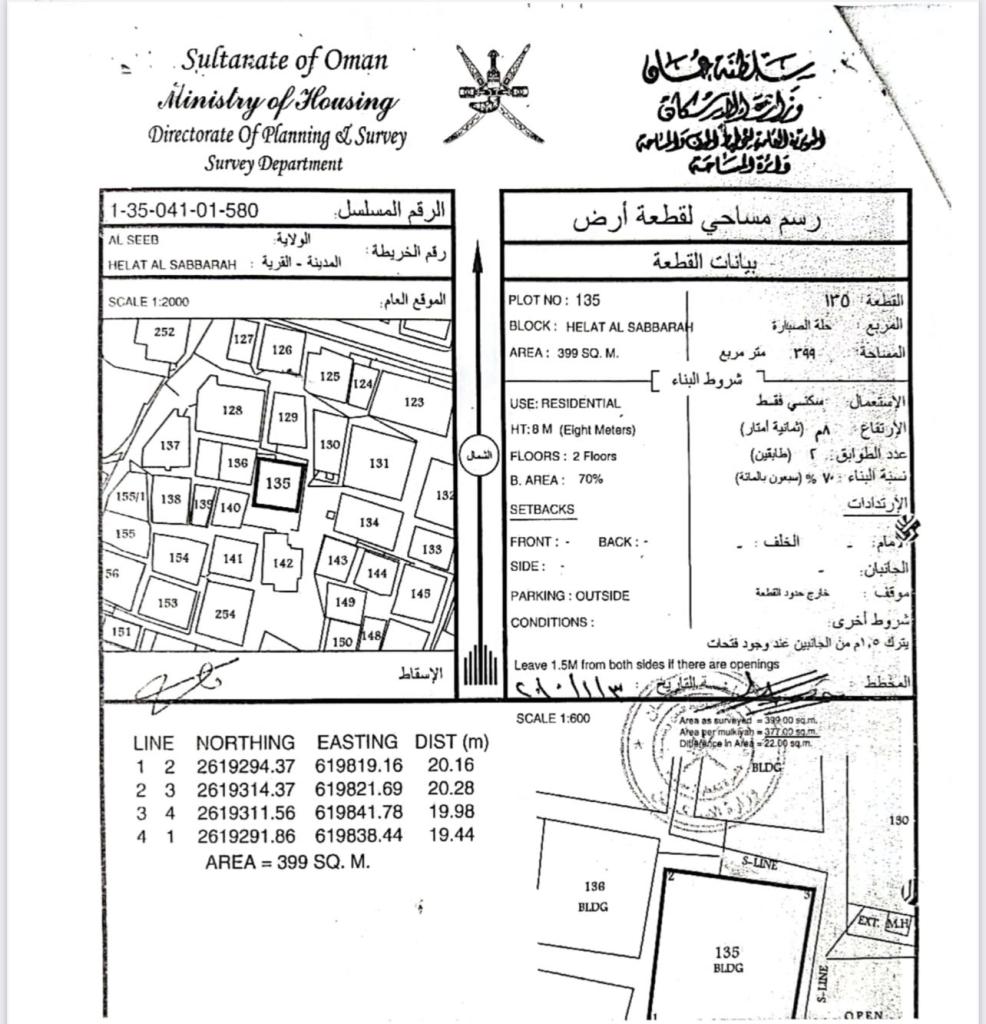 Sultanate of Oman
Ministry of Housing
Directorate Of Planning & Survey
Survey Department
سلطنة عمان
وزارة الإسكان
دائرة المساحة
1-35-041-01-580 الرقم المسلسل:
AL SEEB الولاية:
HELAT AL SABBARAH المدينة - القرية :
رقم الخريطة :
SCALE 1:2000 الموقع العام:
252
127
126
125
124
123
128
129
130
131
137
136
135
132
155/1
138
139
140
134
155
133
154
141
142
143
144
56
145
153
254
149
151
150
148
الإسقاط
الشمال
رسم مساحي لقطعة أرض
بيانات القطعة
PLOT NO : 135 القطعة : ١٣٥
BLOCK : HELAT AL SABBARAH المربع : حلة الصبارة
AREA : 399 SQ. M. المساحة: ٣٩٩ متر مربع
شروط البناء
USE: RESIDENTIAL الإستعمال: سكني فقط
HT: 8 M (Eight Meters) الإرتفاع : ٨م (ثمانية أمتار)
FLOORS : 2 Floors عدد الطوابق: ٢ (طابقين)
B. AREA : 70% نسبة البناء : ٧٠ % (سبعون بالمائة)
SETBACKS الإرتدادات
FRONT : - BACK : - الأمام: - الخلف : -
SIDE : - الجانبان: -
PARKING : OUTSIDE موقف : خارج حدود القطعة
CONDITIONS : شروط أخرى:
يترك ١,٥م من الجانبين عند وجود فتحات
Leave 1.5M from both sides if there are openings
المخطط : التاريخ :
SCALE 1:600
Area as surveyed = 399.00 sq.m.
Area per mulkiyah = 377.00 sq.m.
Difference in Area = 22.00 sq.m.
LINE NORTHING EASTING DIST (m)
1 2 2619294.37 619819.16 20.16
2 3 2619314.37 619821.69 20.28
3 4 2619311.56 619841.78 19.98
4 1 2619291.86 619838.44 19.44
AREA = 399 SQ. M.
BLDG
130
S-LINE
136
BLDG
2
3
EXT. M.H
135
BLDG
S-LINE
1
OPEN